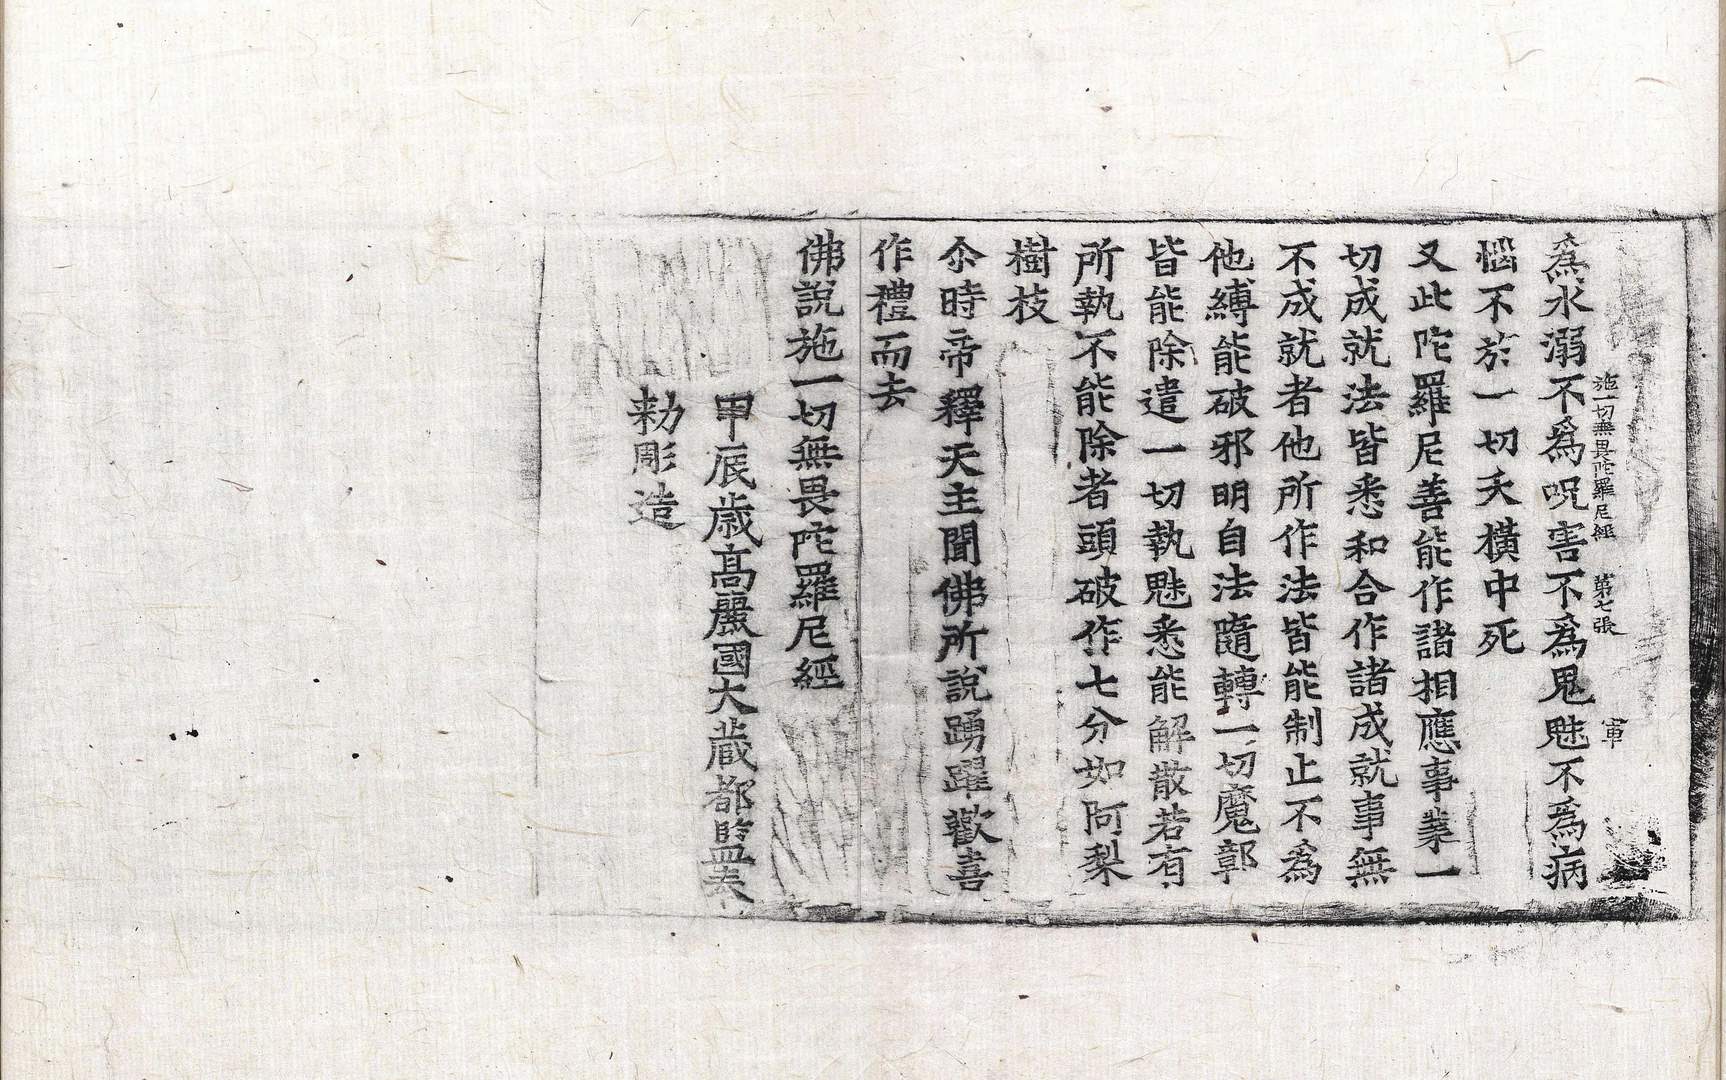 施一切無畏陀羅尼經 第七張 軍
為水溺不為呪害不為鬼魅不為病
惱不於一切夭橫中死
又此陀羅尼善能作諸相應事業一
切成就法皆悉和合作諸成就事無
不成就者他所作法皆能制止不為
他縛能破邪明自法隨轉一切魔鄣
皆能除遣一切執魅悉能解散若有
所執不能除者頭破作七分如阿梨
樹枝
尒時帝釋天主聞佛所說踴躍歡喜
作禮而去
佛說施一切無畏陀羅尼經
甲辰歲高麗國大藏都監奉
勑彫造